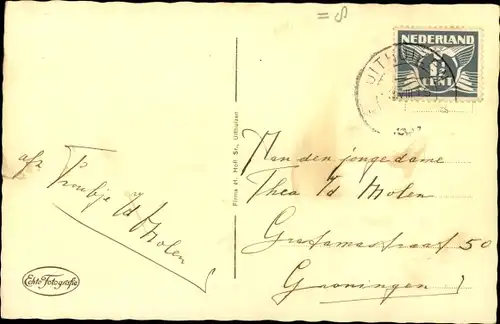 NEDERLAND
1½
CENT
UITHUIZEN
afz
Troubje v/d Molen
Firma H. Holt Sr., Uithuizen
Aan den jonge dame
Thea v/d Molen
Gratamastraat 50
Groningen
Echte Fotografie